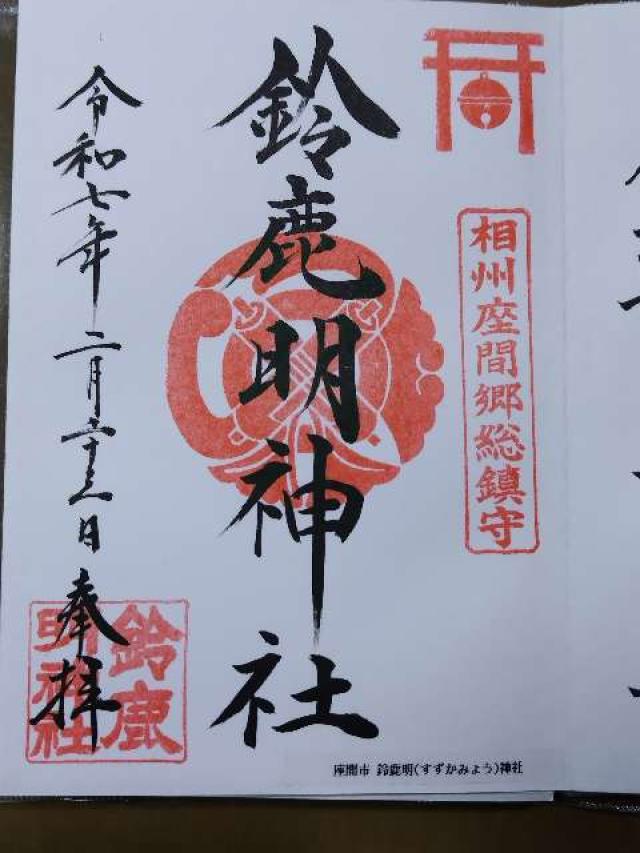 相州座間郷総鎮守
鈴鹿明神社
令和七年二月二十三日 奉拝
鈴鹿
明神社
座間市 鈴鹿明(すずかみょう)神社